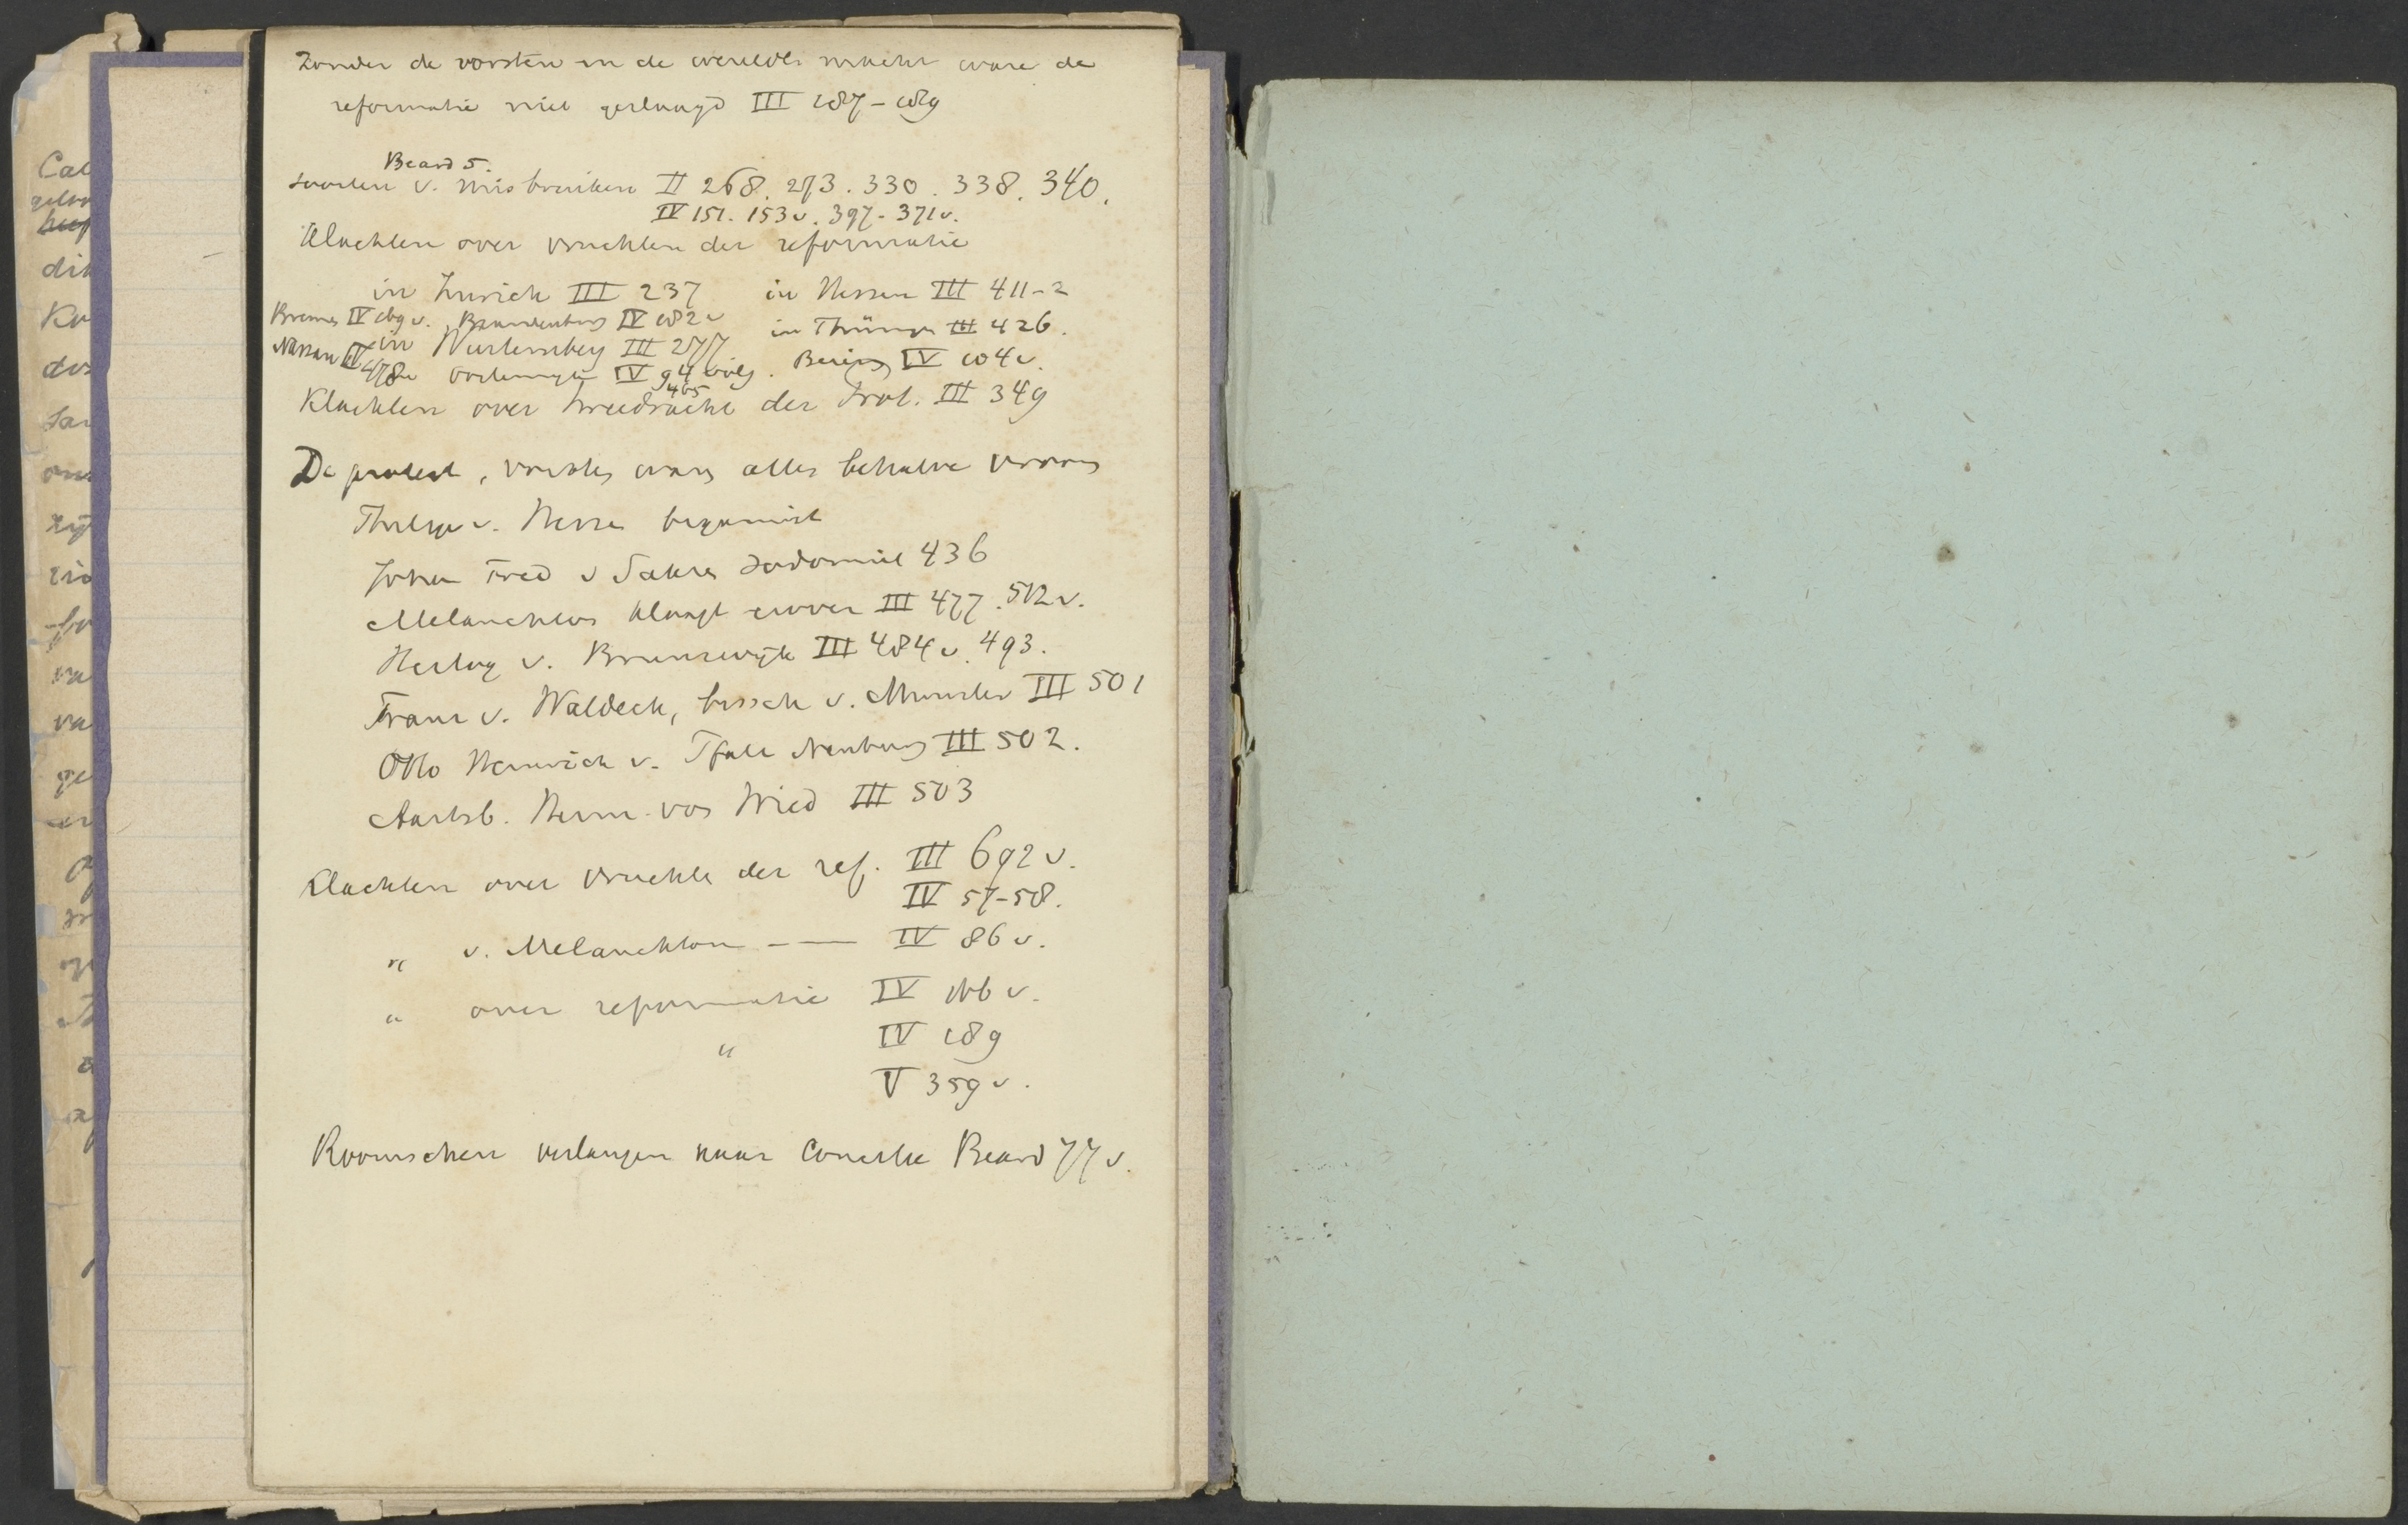 Zonder de vorsten en de wereldl. macht ware de
reformatie niet geslaagd III 187-189
Beard 5.
soorten v. misbruiken II 268. 273. 330. 338. 340.
IV 151. 153 v. 397-371 v.
Klachten over vruchten der reformatie
in Zurich III 237 in Hessen III 411-2
Bremen IV v. Brandenburg IV 182 v in Thüringen III 426.
Nassau IV 478 in Wurtemberg III 277
Oostenrijk IV 94 volg. IV 104 v.
465
Klachten over tweedracht der Prot. III 349
De protest, vorsten waren alles behalve vroom
Philips v. Hessen bigamist
Johan Fred v Saksen sodomiet 436
Melanchton klaagt erover III 477. 512 v.
Hertog v. Brunswijk III 484 v. 493.
Franz v. Waldeck, bissch v. Munster III 501
Otto Heinrich v. Pfalz Neuburg III 502.
Aartsb. Herm. von Wied III 503
Klachten over vruchten der ref. III 692 v.
IV 57-58.
" v. Melanchton -— IV 86 v.
" over reformatie IV 166 v.
" IV 189
V 359 v.
Roomschen verlangen naar Concilie Beard 77 v.
Cal
dit